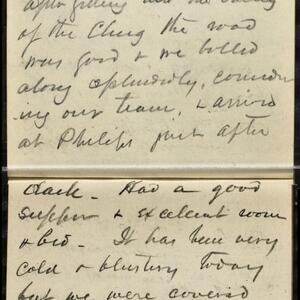 after getting into the valley
of the Chug the road
was good & we bolled
along splendidly, consider
ing our team, & arrived
at Philips just after
dark - Had a good
supper & excellent room
& bed. - It has been very
cold & blustery today
but we were covered